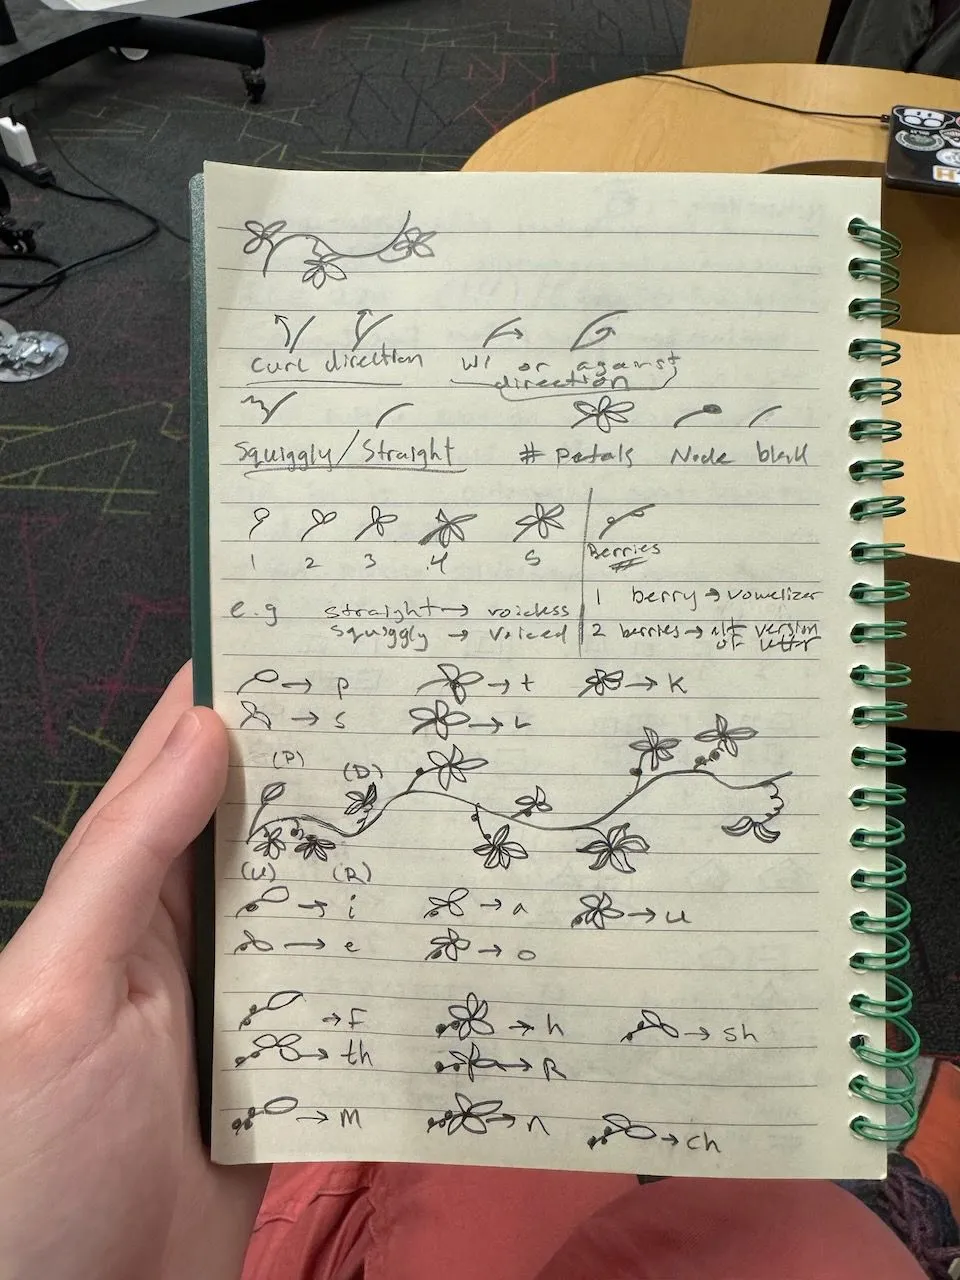 Curl direction w/ or against
direction
Squiggly/Straight # Petals Node blank
1 2 3 4 5 Berries
1 berry → vowelizer
e.g straight → voicless
squiggly → voiced 2 berries → alt version
of letter
→ p → t → k
→ s → L
(P) (D)
(U) (R)
→ i → a → u
→ e → o
→ f → h → sh
→ th → R
→ m → n → ch